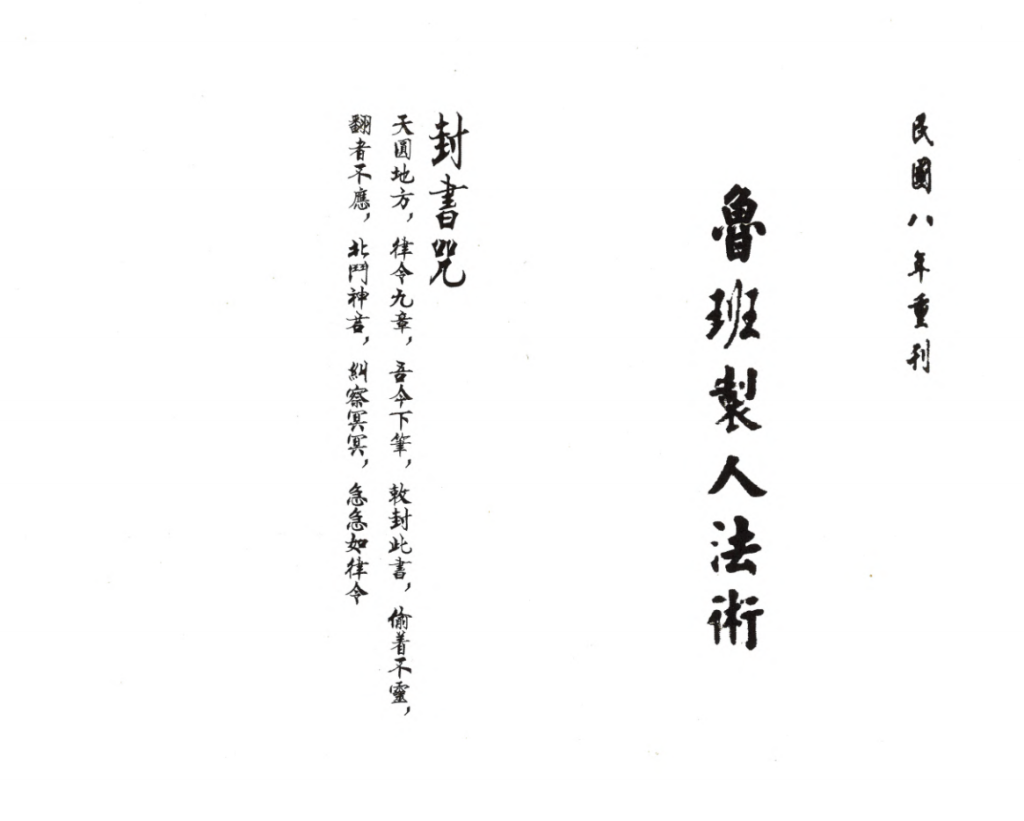 民國八年重刊
魯班製人法術
封書咒
天圓地方，律令九章，吾今下筆，敕封此書，偷着不靈，
翻者不應，北鬥神君，糾察冥冥，急急如律令